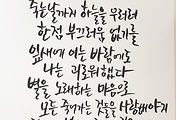 죽는날까지 하늘을 우러러
한점 부끄러움 없기를
잎새에 이는 바람에도
나는 괴로워했다
별을 노래하는 마음으로
모든 죽어가는 것들을 사랑해야지